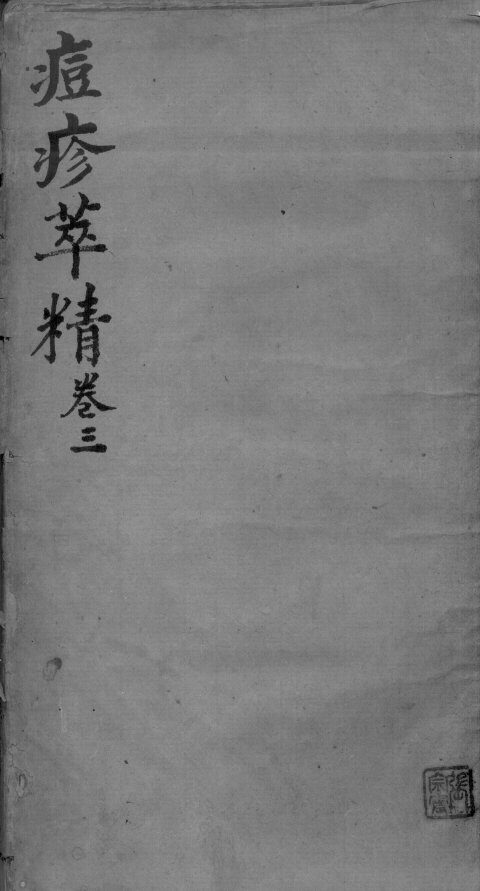 痘疹萃精卷三